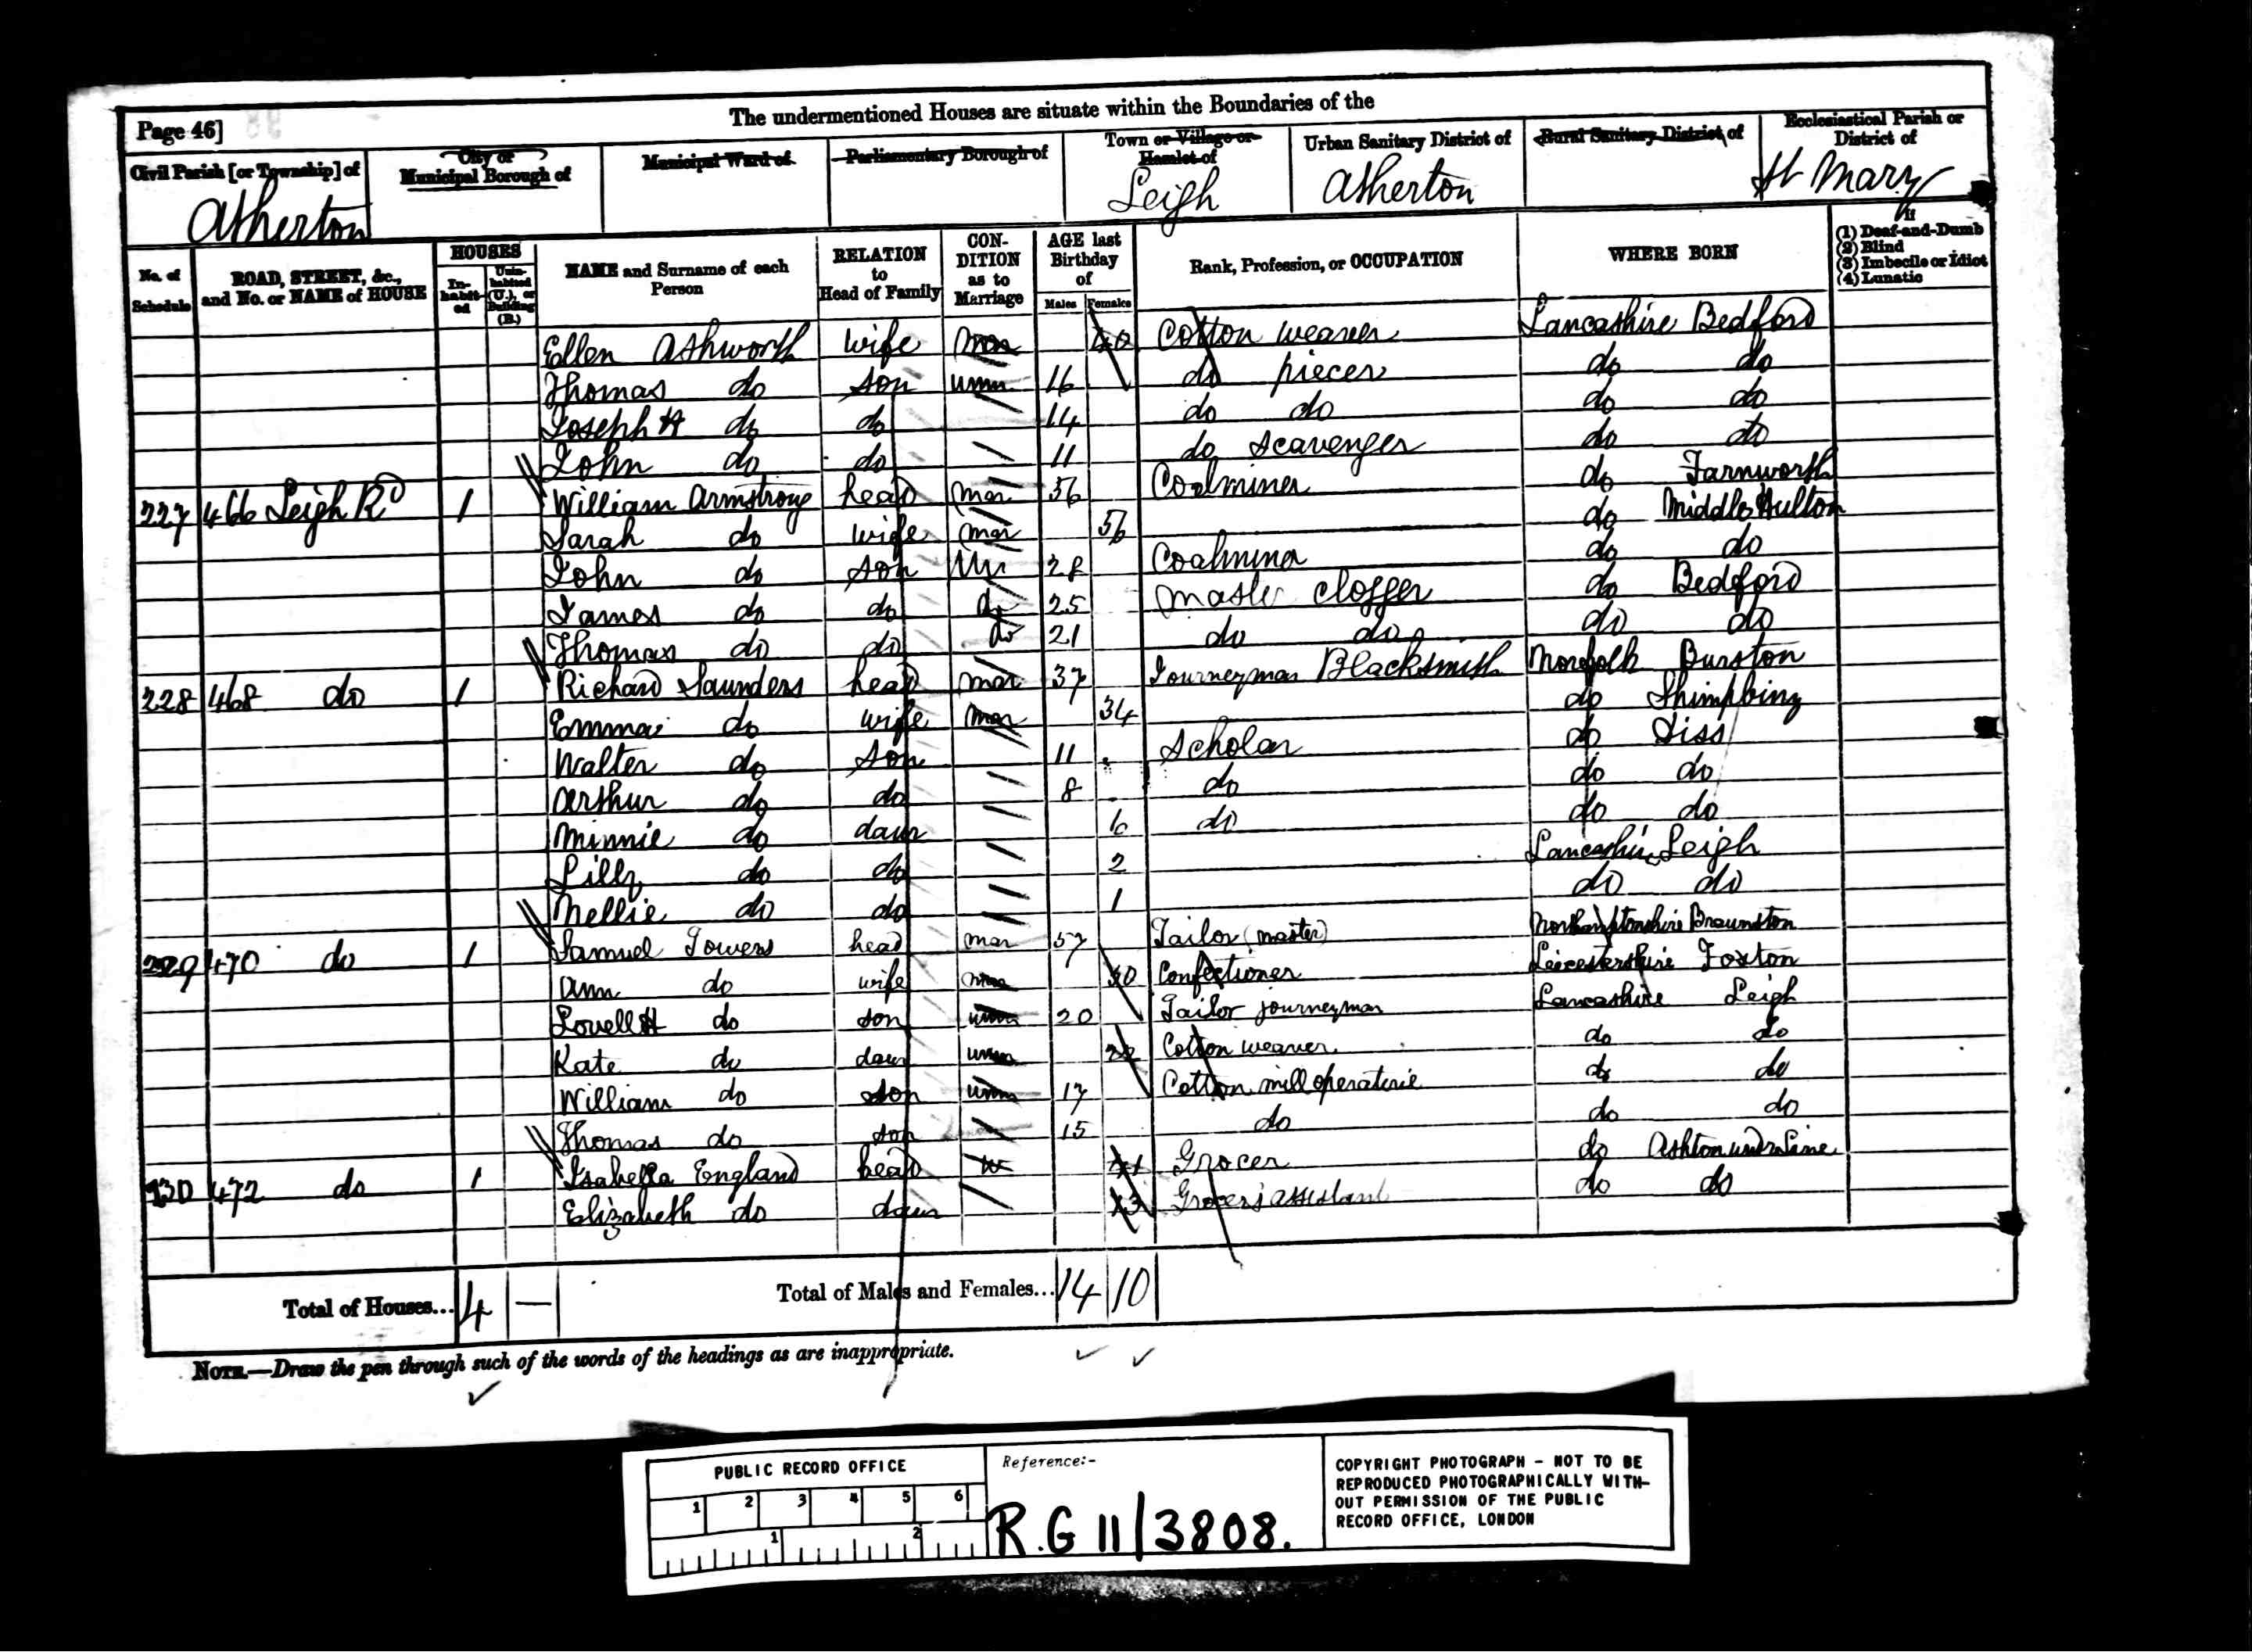 Page 46]
The undermentioned Houses are situate within the Boundaries of the
Civil Parish [or Township] of
Atherton
City or
Municipal Borough of
Municipal Ward of
Parliamentary Borough of
Town or Village or
Hamlet of
Leigh
Urban Sanitary District of
Atherton
Rural Sanitary District of
Ecclesiastical Parish or
District of
St Mary
No. of
Schedule
ROAD, STREET, &c.,
and No. or NAME of HOUSE
HOUSES
In-
habit-
ed
Unin-
habited
(U.), or
Building
(B.)
NAME and Surname of each
Person
RELATION
to
Head of Family
CON-
DITION
as to
Marriage
AGE last
Birthday
of
Males Females
Rank, Profession, or OCCUPATION
WHERE BORN
If
(1) Deaf-and-Dumb
(2) Blind
(3) Imbecile or Idiot
(4) Lunatic
Ellen Ashworth wife mar 40 Cotton weaver Lancashire Bedford
Thomas do son unm 16 do piecer do do
Joseph H do do 14 do do do do
John do do 11 do Scavenger do do
227 466 Leigh Rd 1 William Armstrong head mar 56 Coalminer do Farnworth
Sarah do wife mar 56 do Middle Hulton
John do son Un 28 Coalminer do do
James do do do 25 Master Clogger do Bedford
Thomas do do do 21 do do do do
228 468 do 1 Richard Saunders head mar 37 Journeyman Blacksmith Norfolk Burston
Emma do wife mar 34 do Shimpling
Walter do son 11 Scholar do Diss
Arthur do do 8 do do do
Minnie do daur 6 do do do
Lilly do do 2 Lancashire Leigh
Nellie do do 1 do do
229 470 do 1 Samuel Towers head mar 57 Tailor (master) Northamptonshire Braunston
Ann do wife mar 50 Confectioner Leicestershire Foxton
Lovell H do son unm 20 Tailor journeyman Lancashire Leigh
Kate do daur unm 22 Cotton weaver do do
William do son unm 17 Cotton mill operative do do
Thomas do son 15 do do do
230 472 do 1 Isabella England head w 41 Grocer do Ashton under Line
Elizabeth do daur 13 Grocers assistant do do
Total of Houses... 4 —
Total of Males and Females... 14 10
NOTE.—Draw the pen through such of the words of the headings as are inappropriate.
PUBLIC RECORD OFFICE
1 2 3 4 5 6
1 2
Reference:-
R.G 11/3808.
COPYRIGHT PHOTOGRAPH – NOT TO BE
REPRODUCED PHOTOGRAPHICALLY WITH-
OUT PERMISSION OF THE PUBLIC
RECORD OFFICE, LONDON